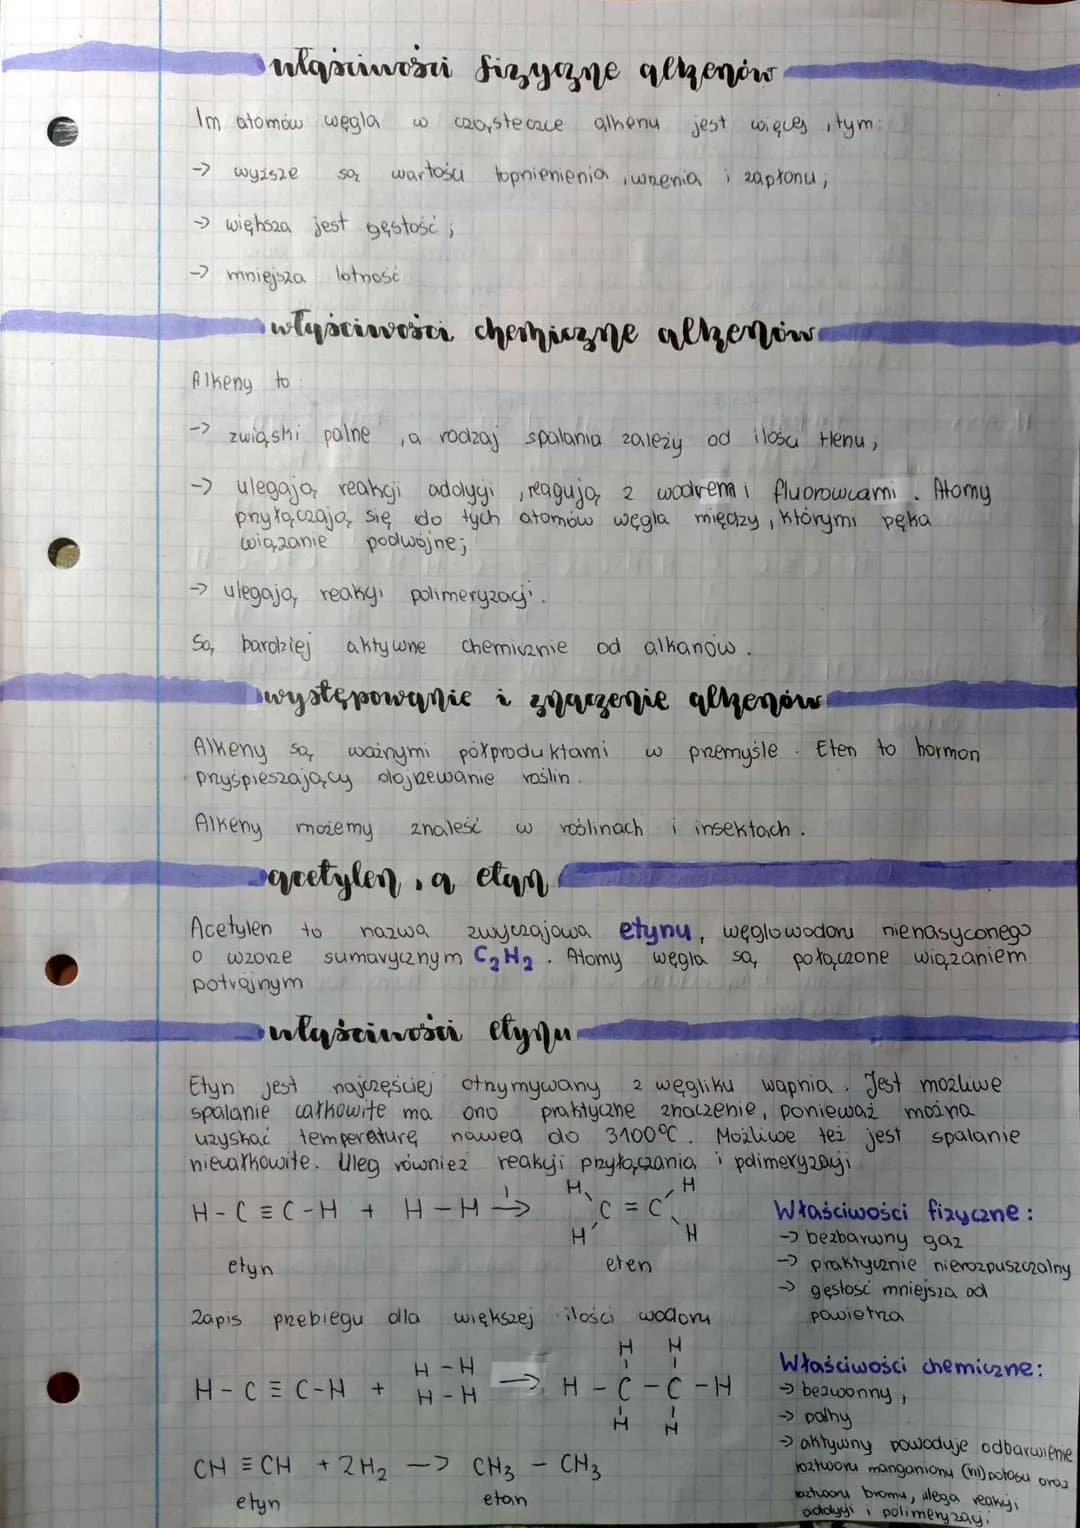 właściwości fizyczne alkenów
Im atomów węgla w cząsteczce alkenu jest więcej, tym:
-> wyższe są wartości topnienienia, wrzenia i zapłonu;
-> większa jest gęstość;
-> mniejsza lotność
właściwości chemiczne alkenów
Alkeny to:
-> związki palne, a rodzaj spalania zależy od ilości tlenu;
-> ulegają reakcji addycji, reagują z wodrem i fluorowcami. Atomy
przyłączają się do tych atomów węgla między, którymi pęka
wiązanie podwójne;
-> ulegają reakcji polimeryzacji.
Są bardziej aktywne chemicznie od alkanów.
występowanie i znaczenie alkenów
Alkeny są ważnymi półproduktami w przemyśle. Eten to hormon
przyśpieszający dojrzewanie roślin.
Alkeny możemy znaleść w roślinach i insektach.
acetylen, a etan
Acetylen to nazwa zwyczajowa etynu, węglowodoru nienasyconego
o wzorze sumarycznym C₂H₂. Atomy węgla są połączone wiązaniem
potrójnym
właściwości etynu
Etyn jest najczęściej otrzymywany z węgliku wapnia. Jest możliwe
spalanie całkowite ma ono praktyczne znaczenie, ponieważ można
uzyskać temperaturę nawed do 3100°C. Możliwe też jest spalanie
niecałkowite. Uleg również reakcji przyłączania i polimeryzacji
H-C≡C-H + H-H -> H H C = C H H
etyn eten
Właściwości fizyczne:
-> bezbarwny gaz
-> praktycznie nierozpuszczalny
-> gęstość mniejsza od
powietrza
Zapis przebiegu dla większej ilości wodoru
H-C≡C-H + H-H H-H -> H H H-C-C-H H H
CH≡CH + 2H₂ -> CH₃ - CH₃
etyn etan
Właściwości chemiczne:
-> bezwonny,
-> palny
-> aktywny powoduje odbarwienie
roztworu manganianu (VII) potasu oraz
roztworu bromu, ulega reakcji
addycji i polimeryzacji